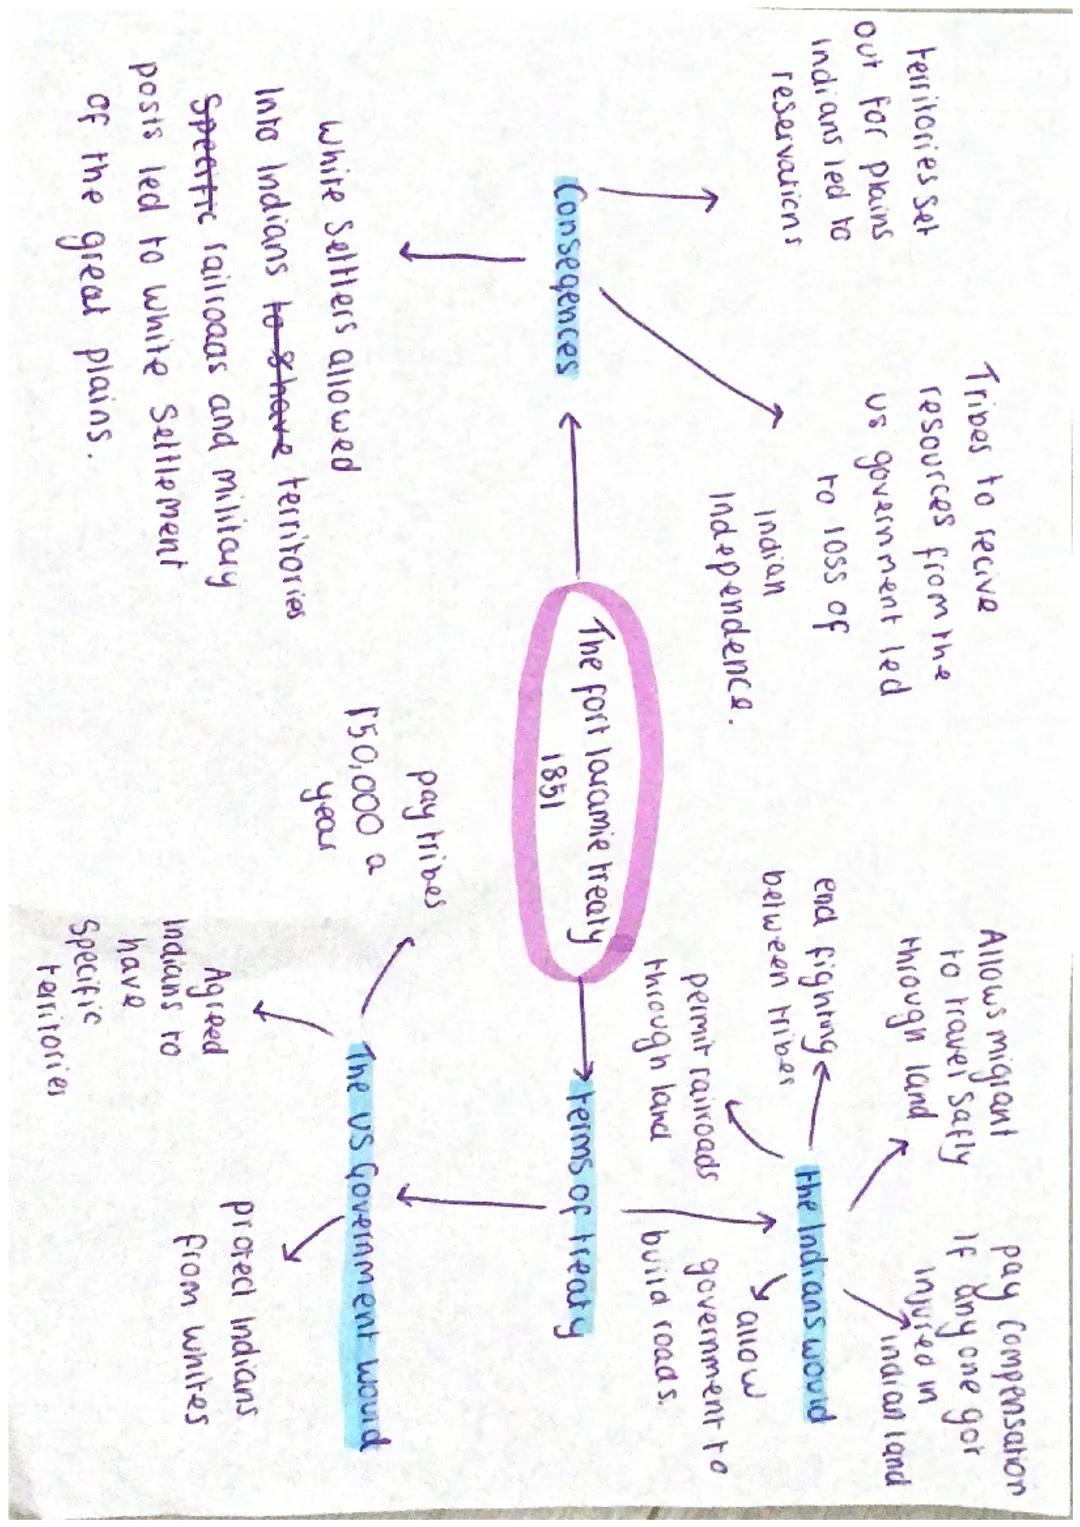 The fort laramie treaty
1851
Conseqences
territories set
out for plains
indians led to
reservations
Tribes to recive
resources from the
us government led
to loss of
indian
independence.
white settlers allowed
Into Indians to share territories
Specific railroads and military
posts led to white Settlement
of the great plains.
terms of treaty
the Indians would
end fighting
between tribes
Allows migrant
to travel safly
through land
pay compensation
If anyone got
injured in
indian land
permit railroads
through land
allow
government to
build roads.
The US Government would
pay tribes
$50,000 a
year
Agreed
Indians to
have
Specific
territories
protect Indians
from whites